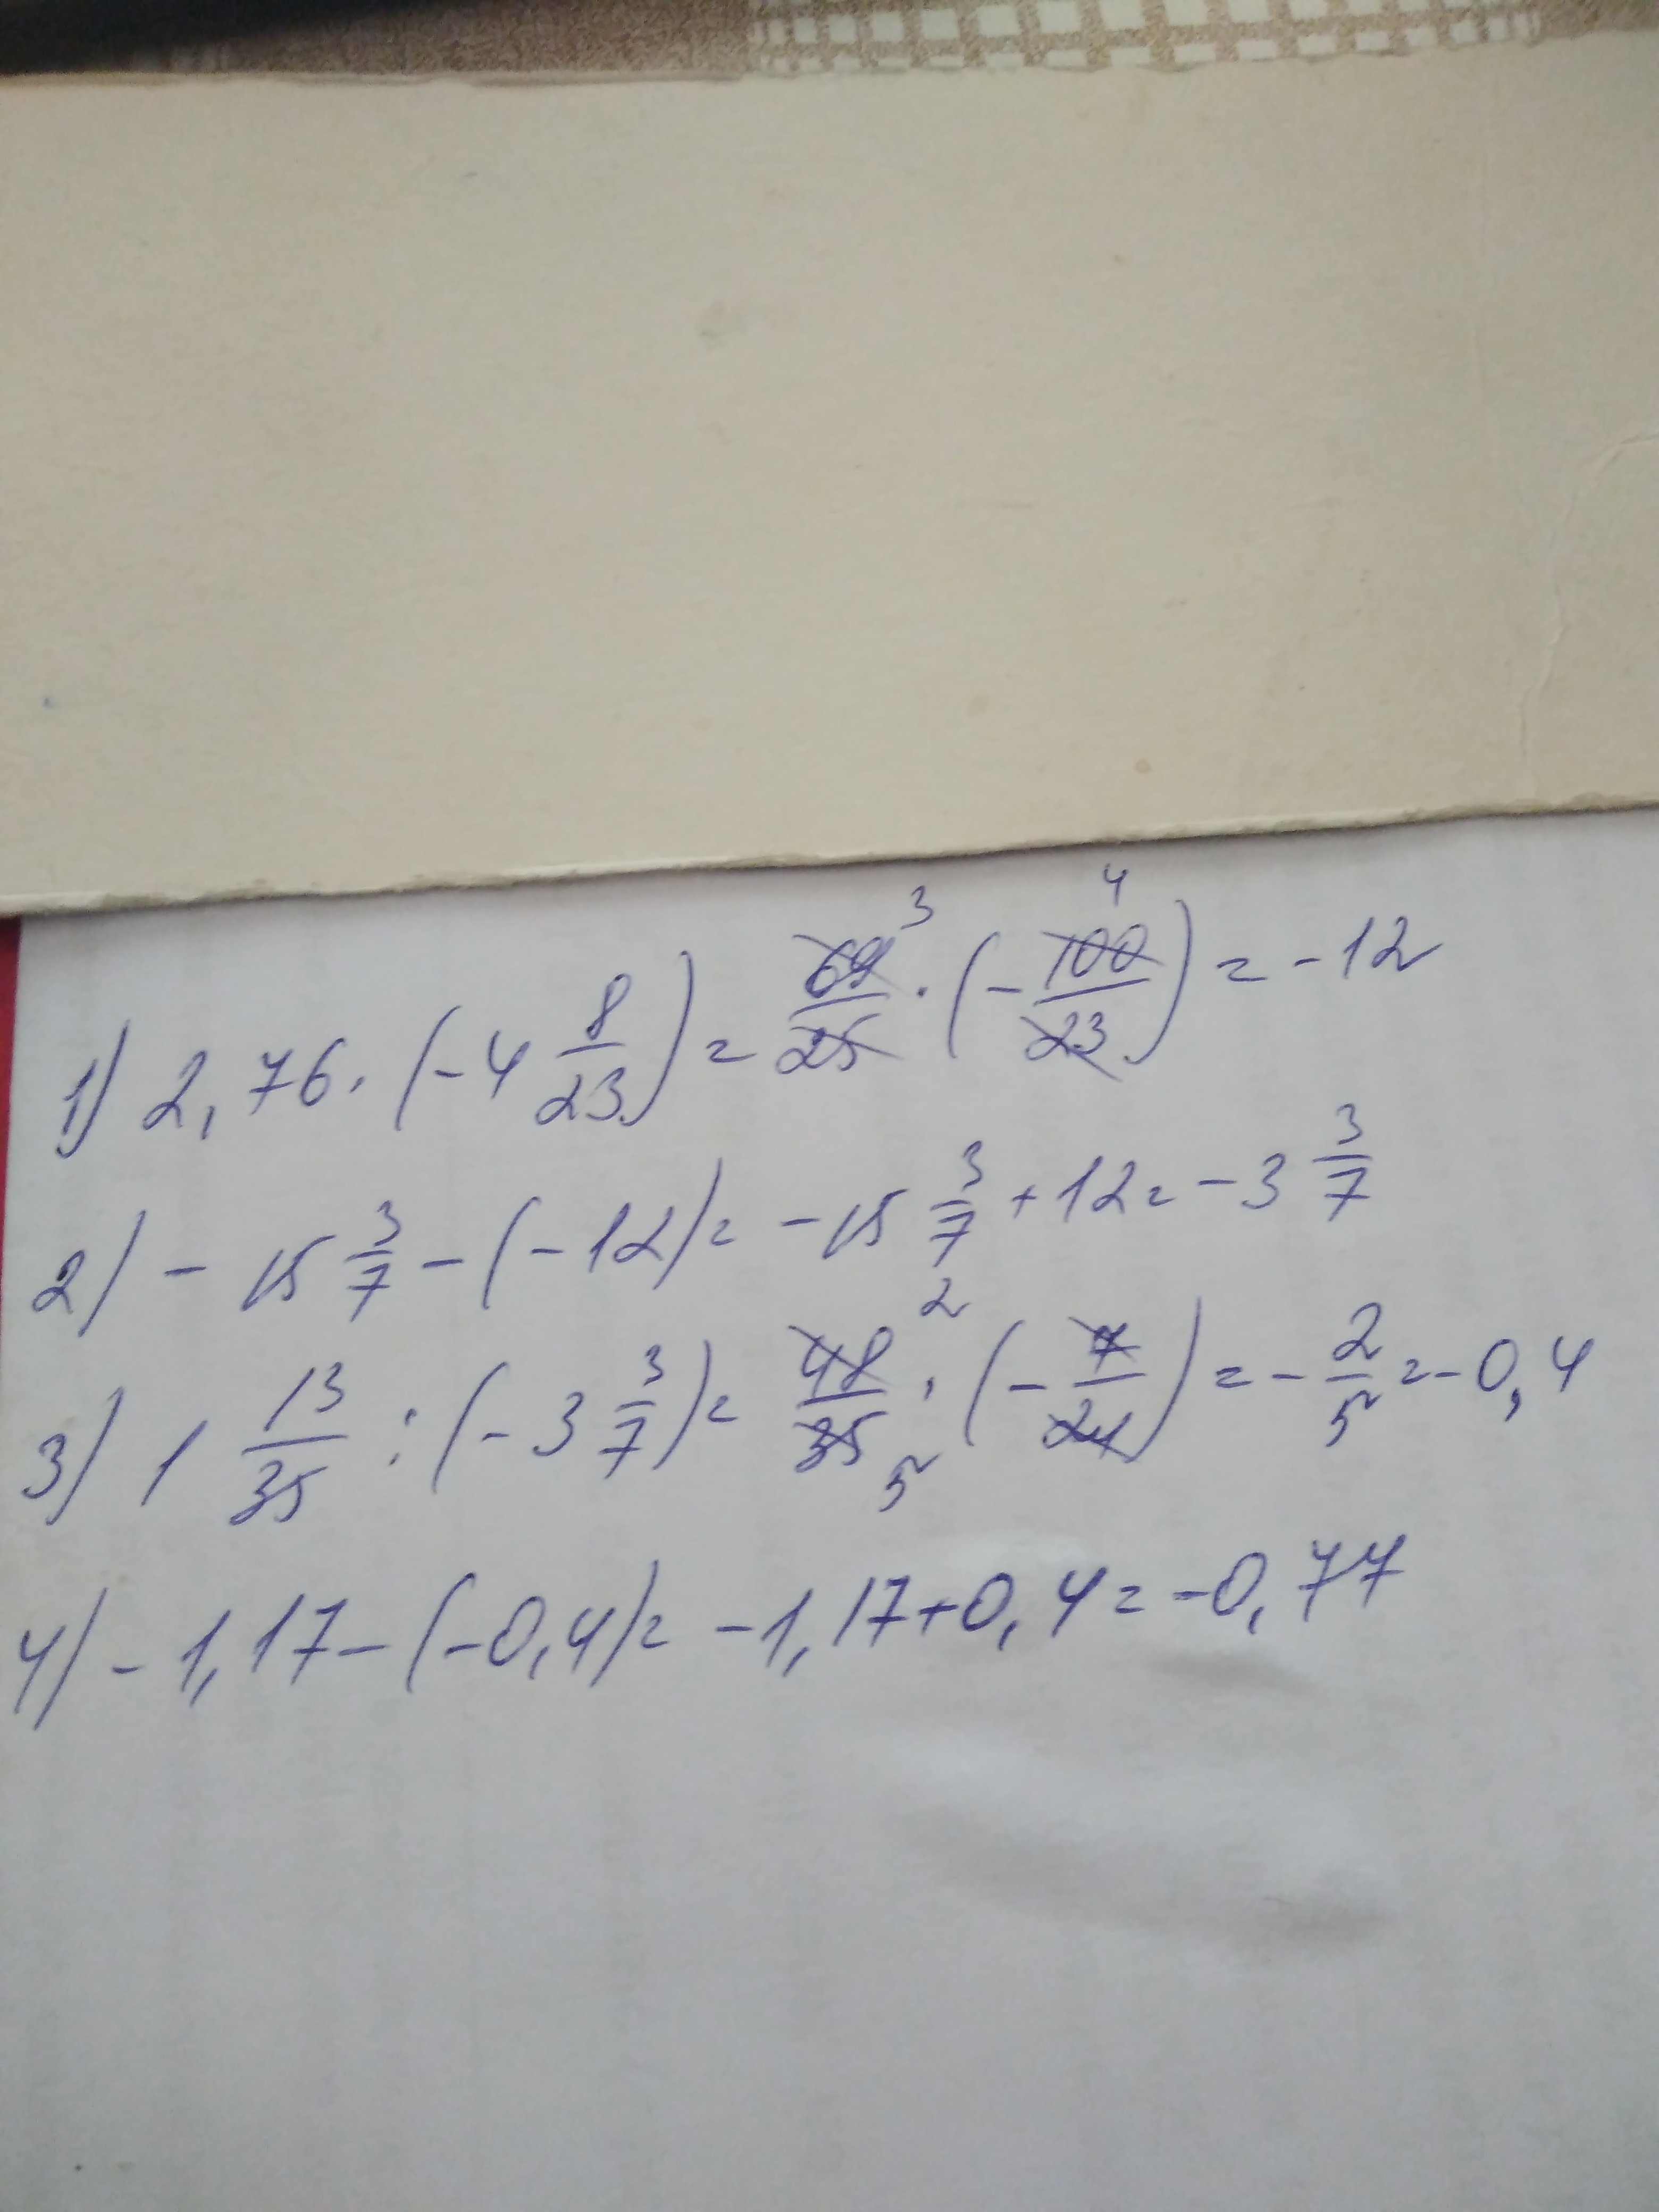 1) 2,76 · (-4 8/23) = 69/25 3 · (- 100/23) 4 = -12
2) -15 3/7 - (-12) = -15 3/7 + 12 = -3 3/7
3) 1 13/35 : (-3 3/7) = 48/35 2 5 · (- 7/24) = - 2/5 = -0,4
4) -1,17 - (-0,4) = -1,17 + 0,4 = -0,77